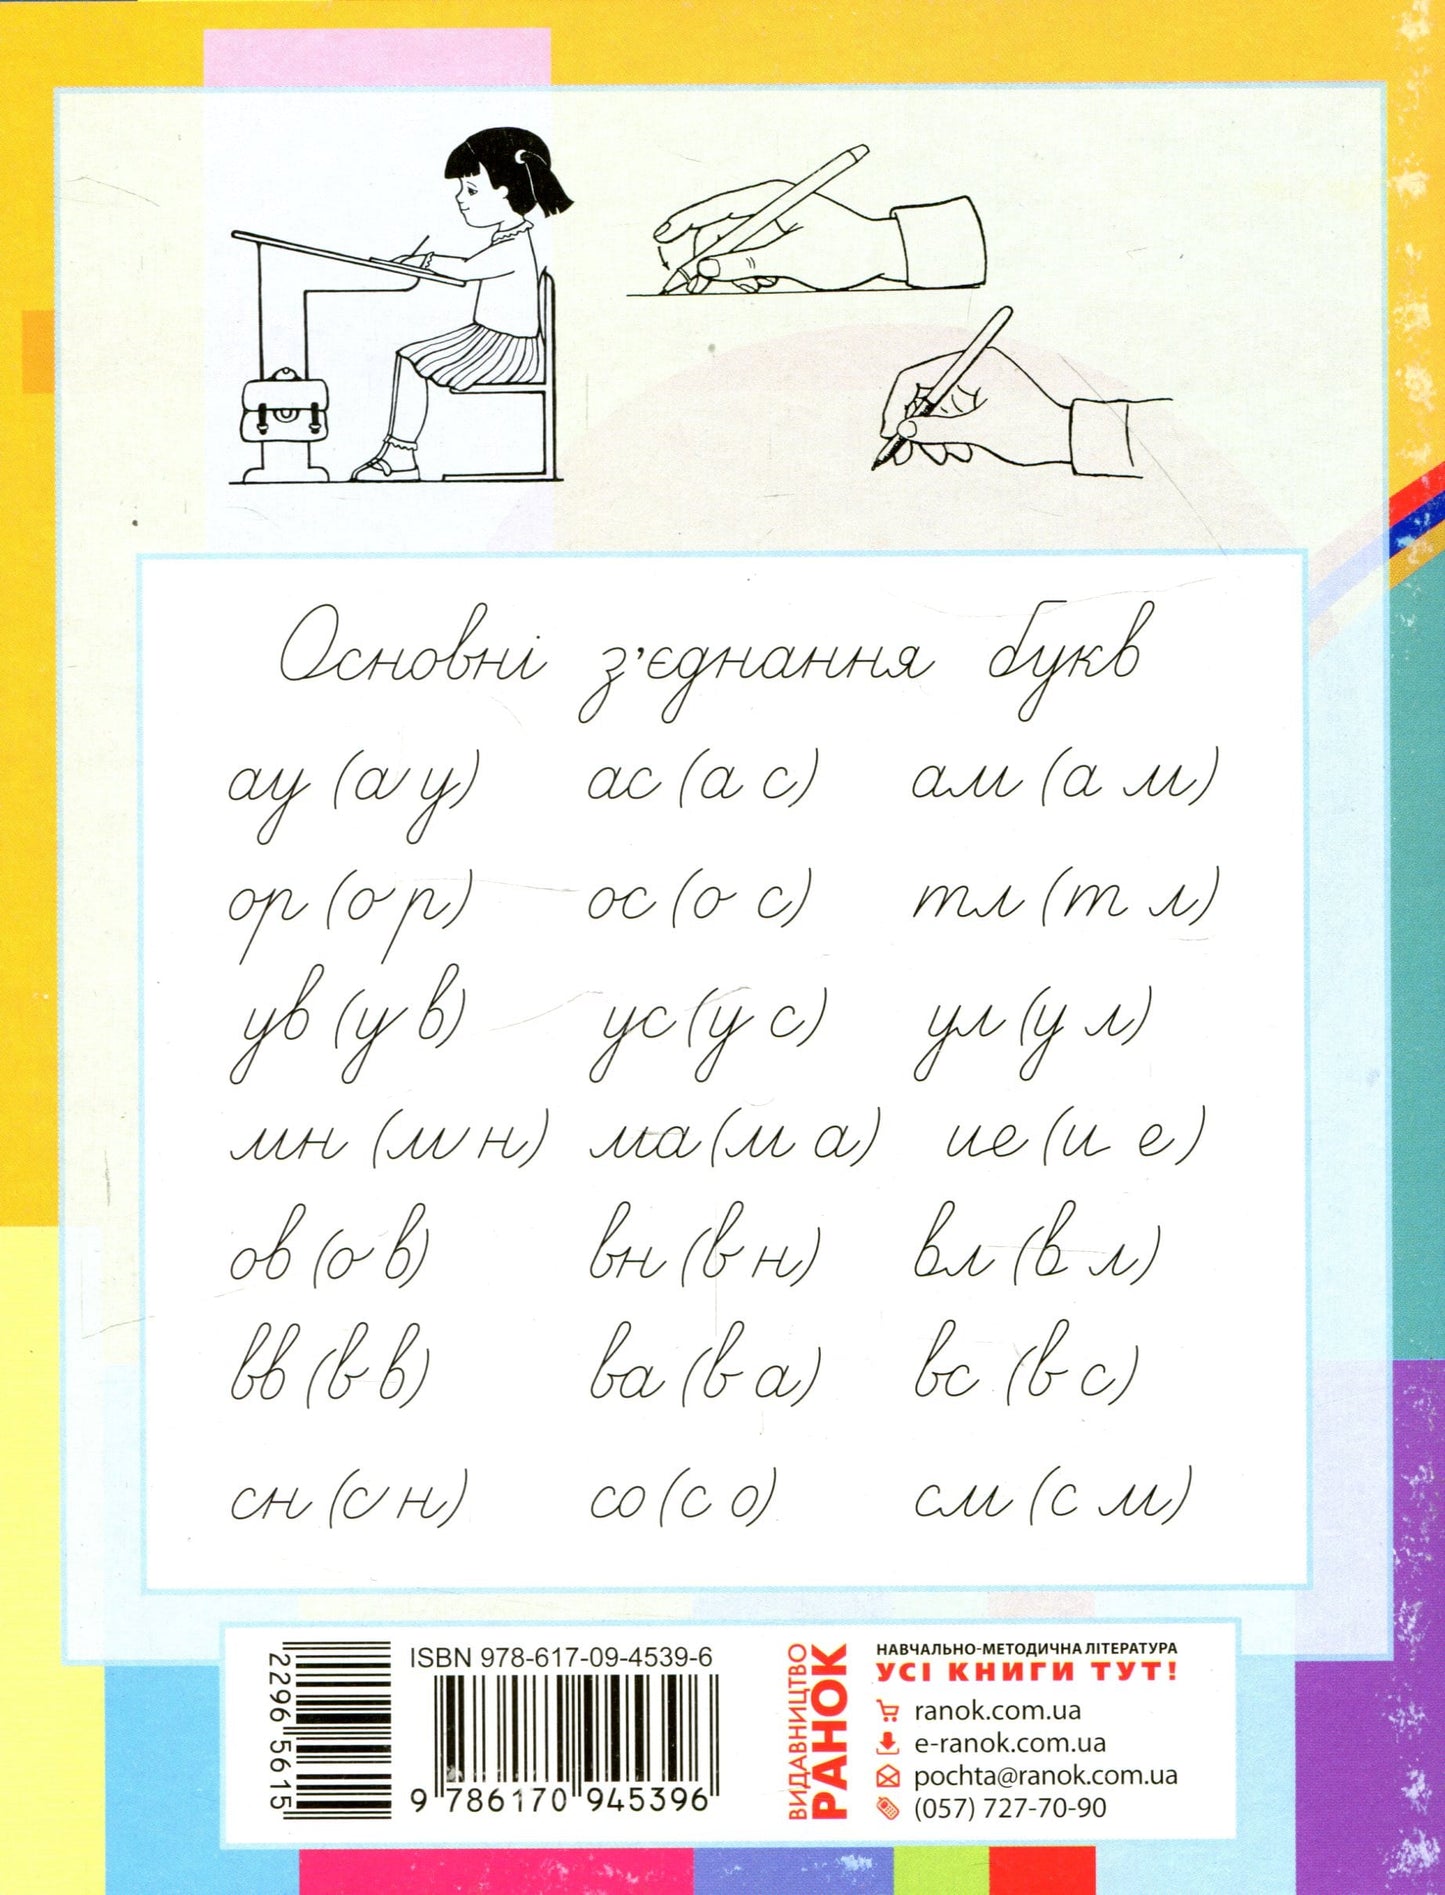 Основні з'єднання букв
ау (а у) ас (а с) ам (а м)
ор (о р) ос (о с) тл (т л)
ув (у в) ус (у с) ул (у л)
мн (м н) ма (м а) ие (и е)
ов (о в) вн (в н) вл (в л)
вв (в в) ва (в а) вс (в с)
сн (с н) со (с о) см (с м)
2296 5615
ISBN 978-617-09-4539-6
9 786170 945396
ВИДАВНИЦТВО
РАНОК
НАВЧАЛЬНО-МЕТОДИЧНА ЛІТЕРАТУРА
УСІ КНИГИ ТУТ!
ranok.com.ua
e-ranok.com.ua
pochta@ranok.com.ua
(057) 727-70-90